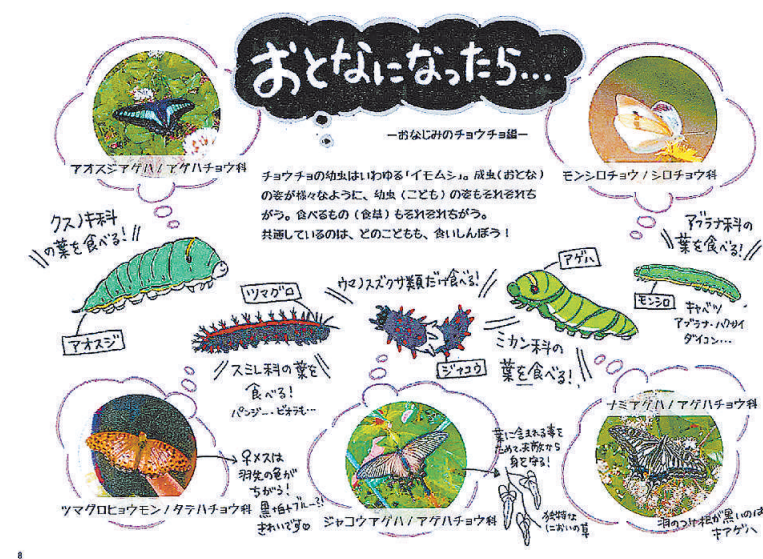 おとなになったら…
ーおなじみのチョウチョ編ー
チョウチョの幼虫はいわゆる「イモムシ」。成虫(おとな)
の姿が様々なように、幼虫（こども）の姿もそれぞれち
がう。食べるもの（食草）もそれぞれちがう。
共通しているのは、どのこどもも、食いしんぼう！
アオスジアゲハ/アゲハチョウ科
モンシロチョウ/シロチョウ科
クスノキ科
の葉を食べる！
アオスジ
ツマグロ
スミレ科の葉を
食べる！
パンジー・ビオラも…
ウマノスズクサ類だけ食べる！
ジャコウ
アゲハ
ミカン科の
葉を食べる！
アブラナ科の
葉を食べる！
モンシロ
キャベツ
アブラナ・ハクサイ
ダイコン…
ツマグロヒョウモン/タテハチョウ科
♀メスは
羽先の色が
ちがう！
黒・白+ブルー?!
きれいです
ジャコウアゲハ/アゲハチョウ科
葉に含まれる毒を
ためて天敵から
身を守る！
独特な
においの草
ナミアゲハ/アゲハチョウ科
羽のつけ根が黒いのは
キアゲハ
8